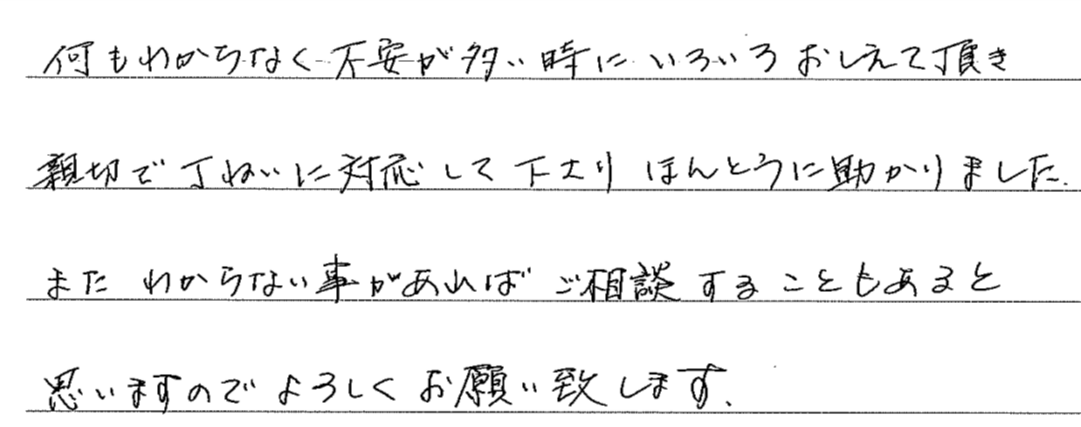 何もわからなく不安が多い時にいろいろおしえて頂き
親切で丁ねいに対応して下さり ほんとうに助かりました.
また わからない事があれば ご相談することもあると
思いますのでよろしくお願い致します.